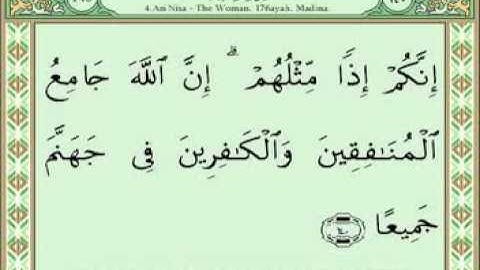 4.An Nisa - The Woman. 176ayah. Madina.
إِنَّكُمْ إِذًا مِّثْلُهُمْ ۗ إِنَّ ٱللَّهَ جَامِعُ
ٱلْمُنَـٰفِقِينَ وَٱلْكَـٰفِرِينَ فِى جَهَنَّمَ
جَمِيعًا ١٤٠